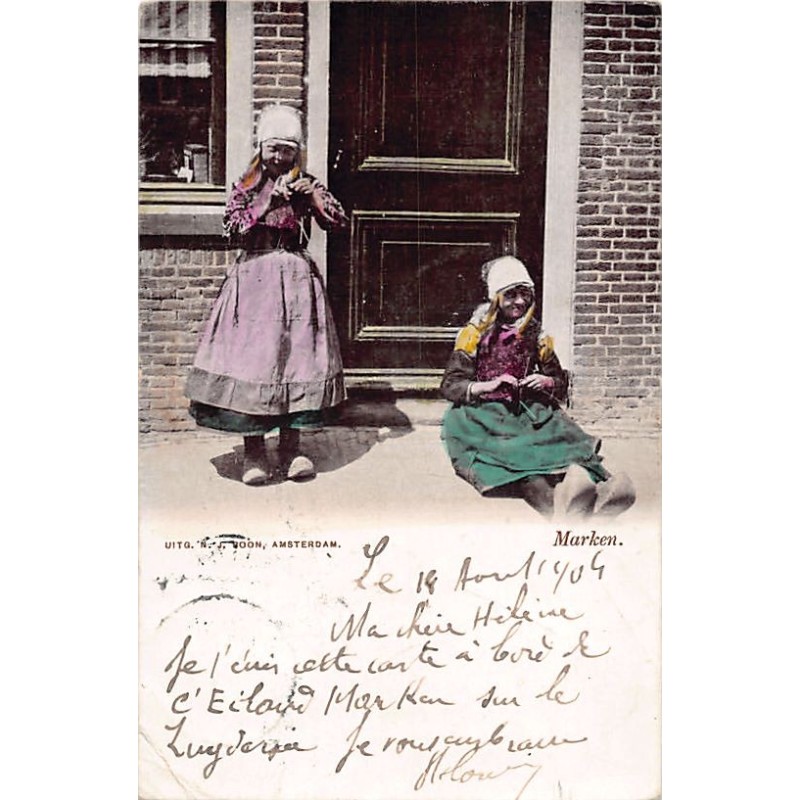 UITG. N. J. BOON, AMSTERDAM.
Marken.
Le 18 Aout 1904
Ma chère Hélène
Je t'écris cette carte à bord de
l'Eiland Marken sur le
Zuyderzée Je vous embrasse